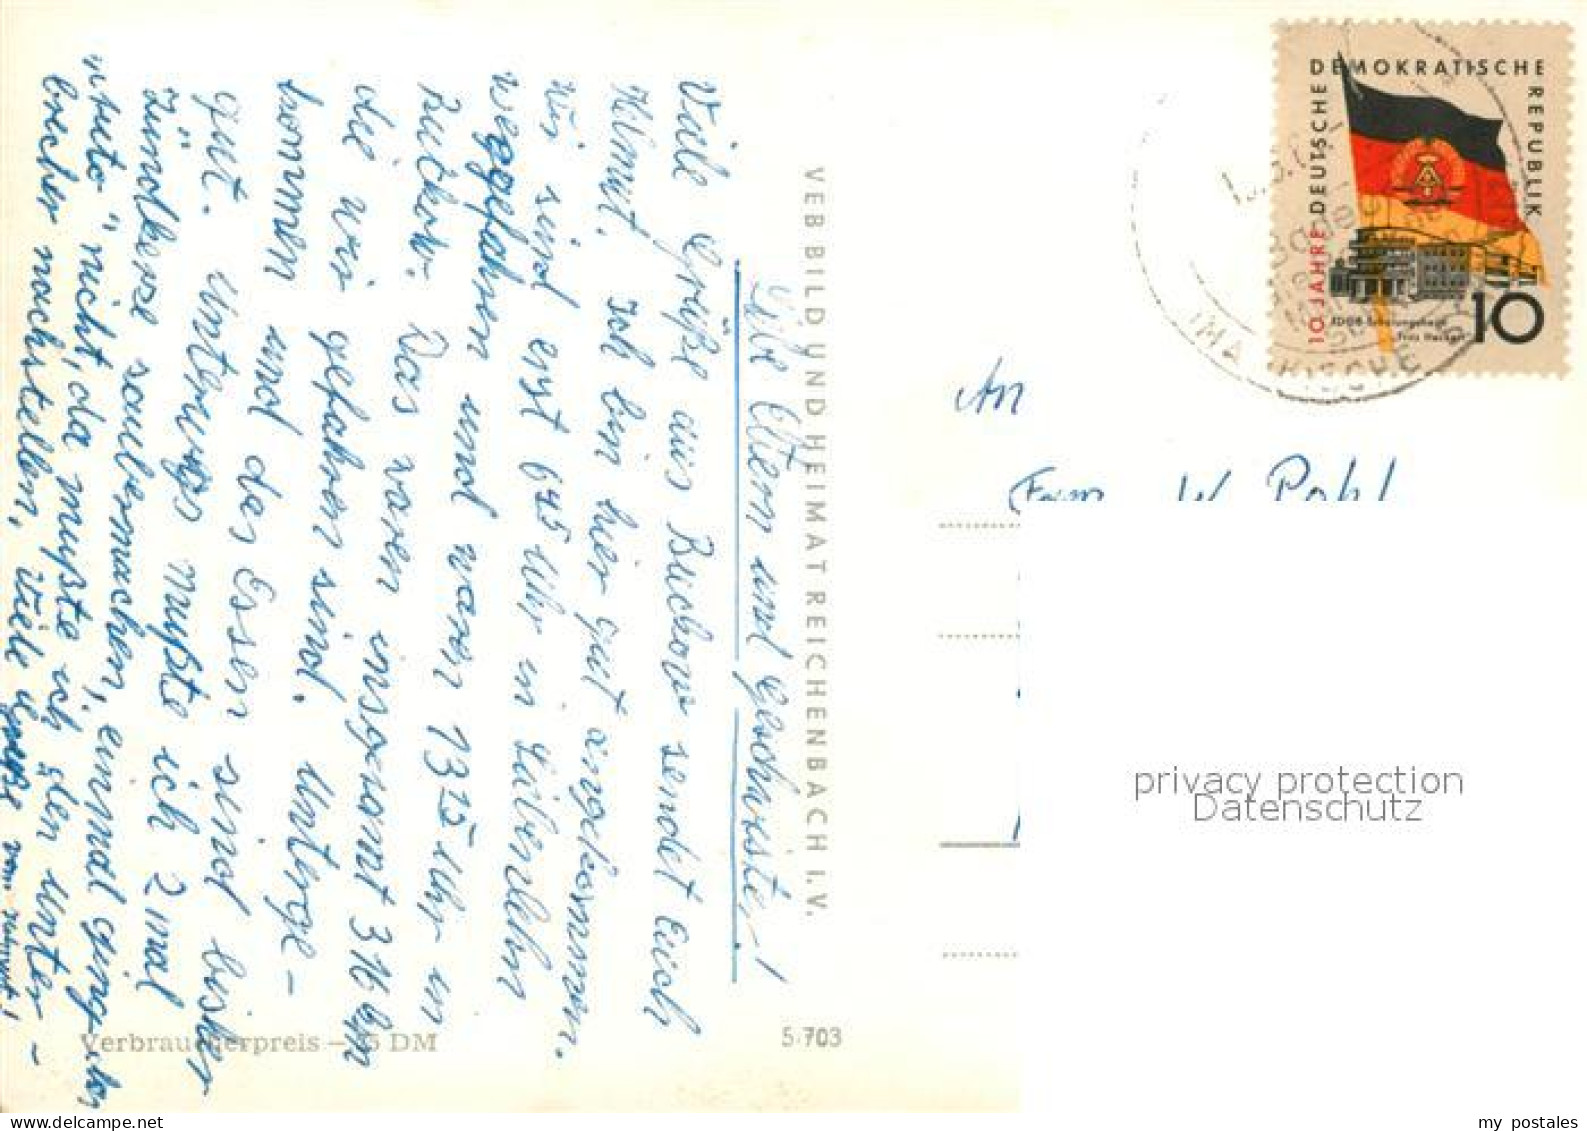 Liebe Eltern und Geschwister!
Viele Grüße aus Buckow sendet Euch
Helmut. Ich bin hier gut angekommen.
Wir sind erst 645 Uhr in
weggefahren und waren 1315 Uhr in
Buckow. Das waren insgesamt 316 km
die wir gefahren sind. Unterge-
kommen und das Essen sind bisher
gut. Unterwegs mußte ich 2 mal
Zündkerze saubermachen, einmal ging
"Auto" nicht, da mußte ich den Unter-
brecher nachstellen, Viele Grüße von Helmut!
VEB BILD UND HEIMAT REICHENBACH I. V.
Verbraucherpreis – DM
5/703
10 JAHRE DEUTSCHE DEMOKRATISCHE REPUBLIK
FDGB-Schulungsheim
Fritz Heckert
10
MÄRKISCHE
An
Fam. W. Pohl
privacy protection
Datenschutz
my postales